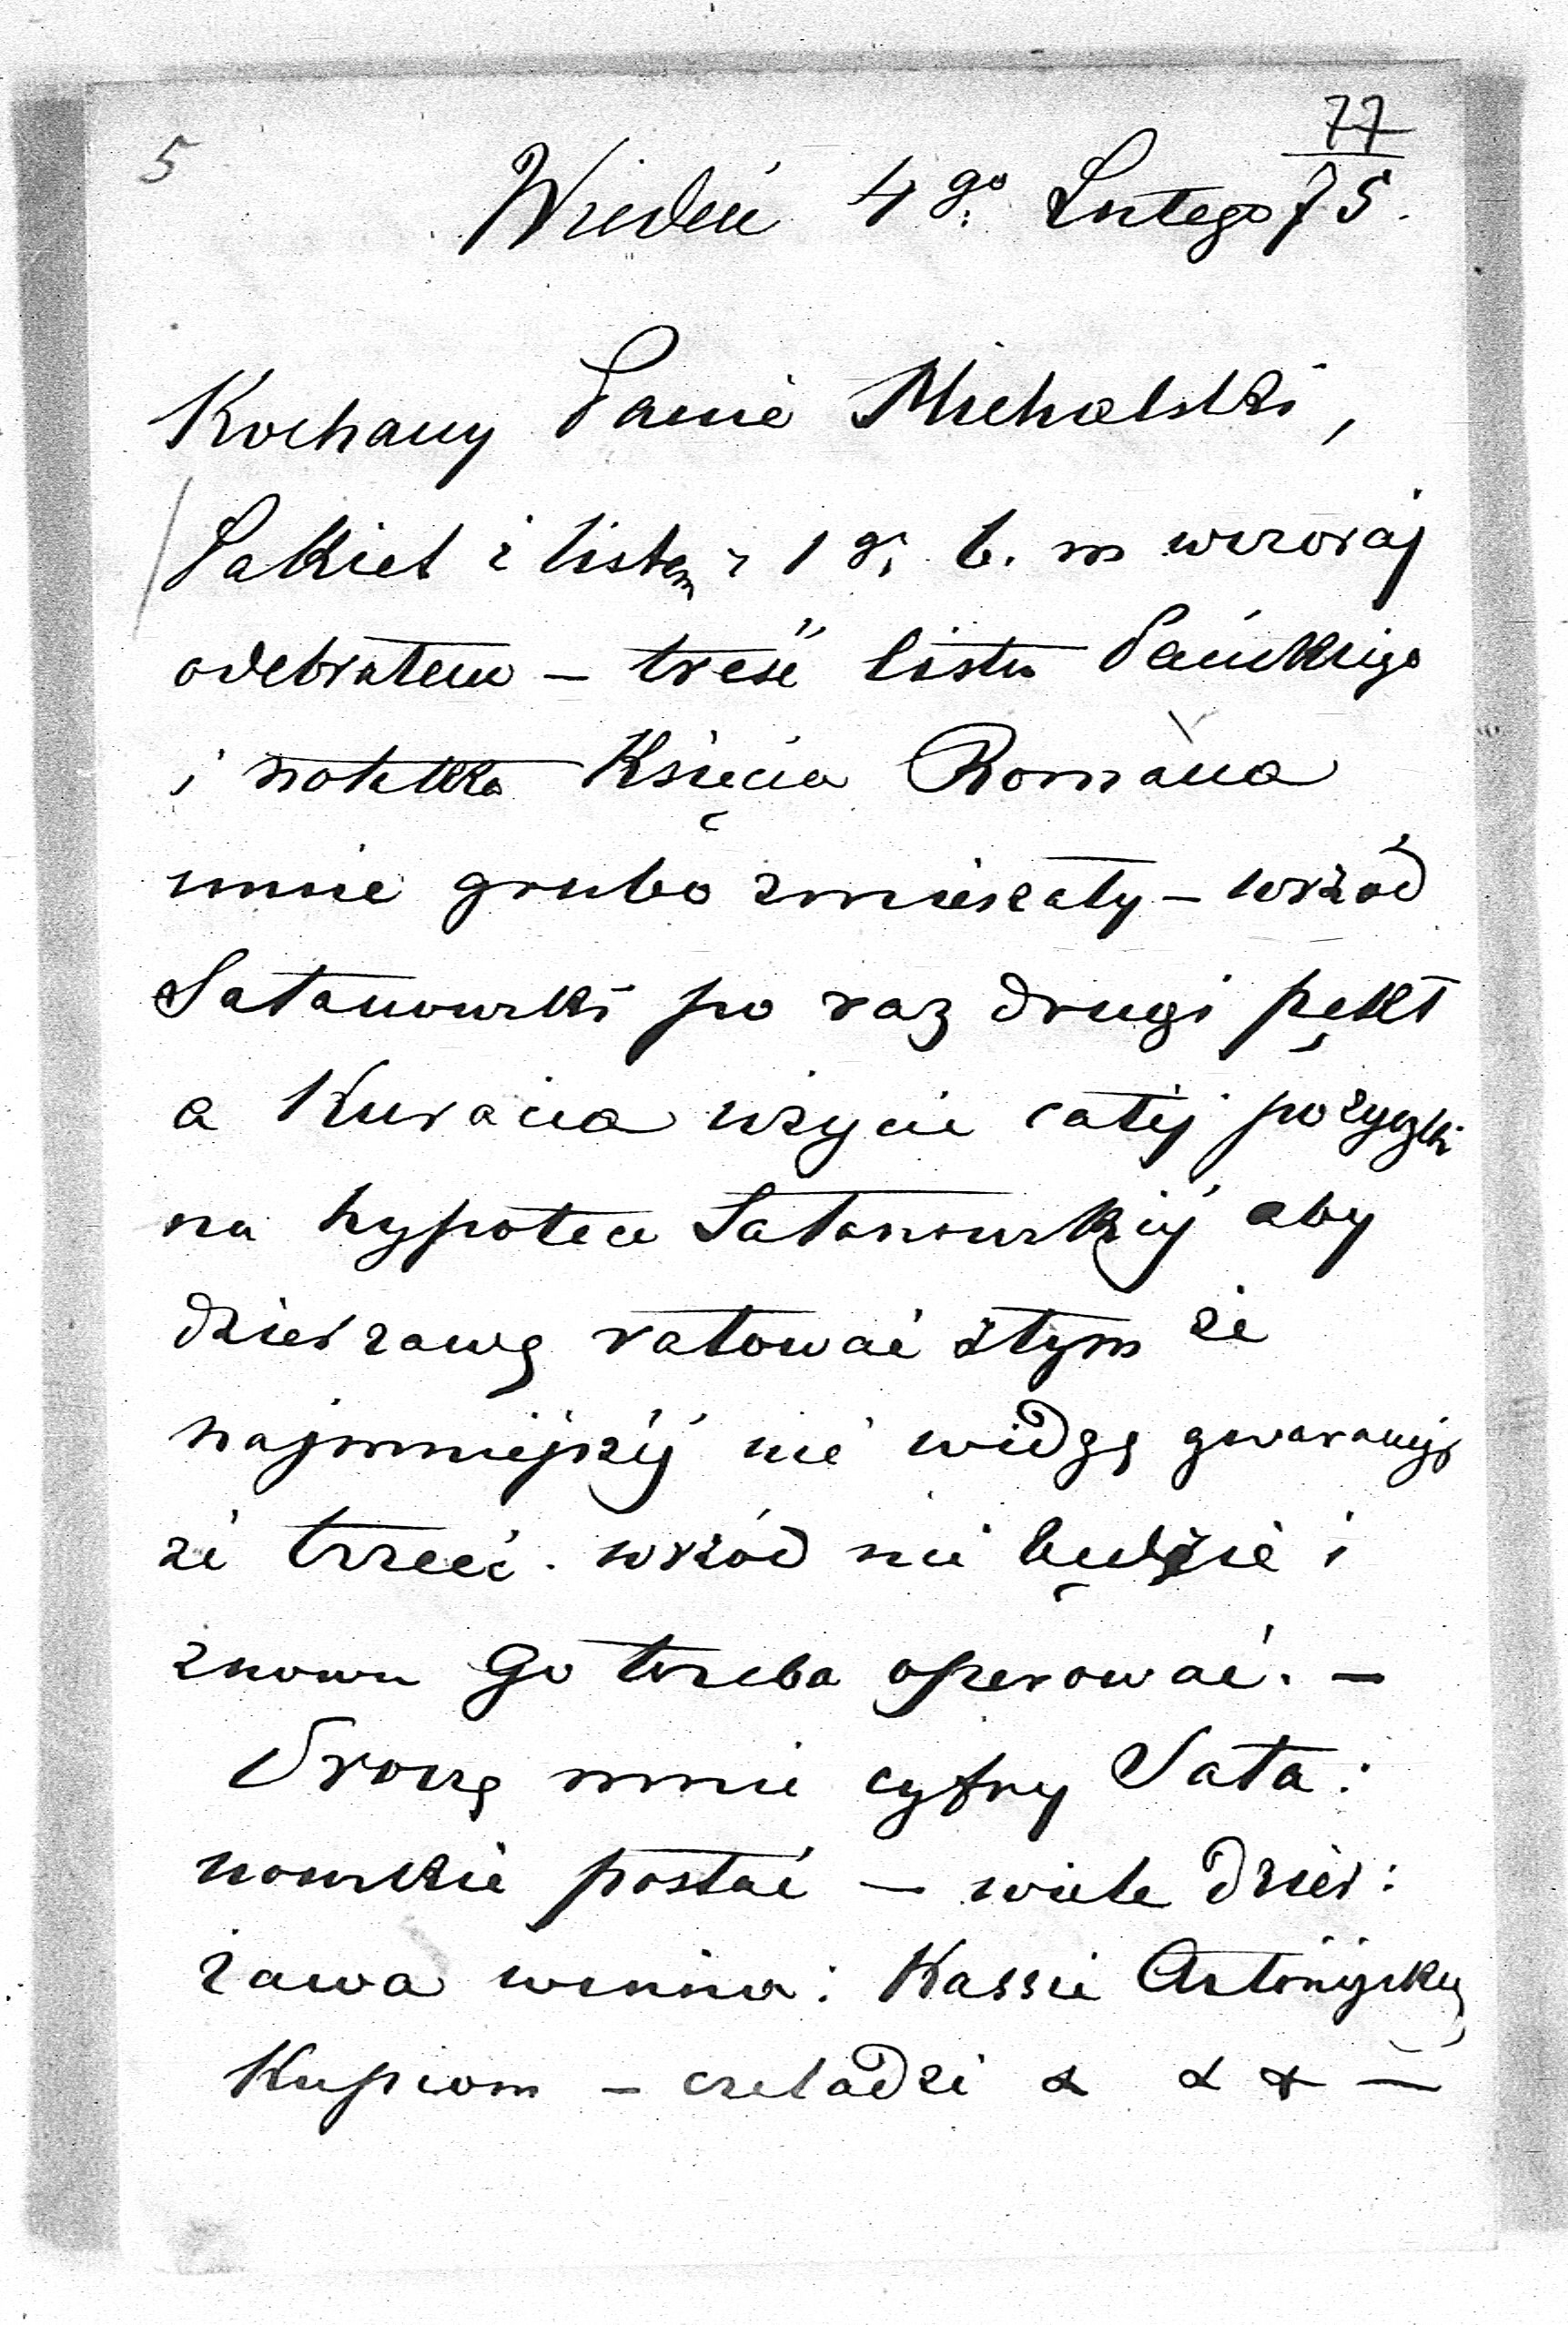 5
77
Wiedeń 4go Lutego 75.
Kochany Panie Michalski,
Pakiet z listem z 1g. b. m wczoraj
odebrałem – treść listu Pańskiego
i notatka Księcia Romana
mnie grubo zmieszały – wrzód
Satanowski po raz drugi pękł
a Kuracia użycie całej pożyczki
na hypotece Satanowskiej aby
dzierżawę ratować z tym że
najmniejszej nie widzę gwarancyi
że trzeci wrzód nie będzie i
znowu go trzeba operować. –
Proszę mnie cyfry Sata:
nowskie posłać – wiele dzier:
żawa winna: Kassie
Kupcom – czeladzi & & & —